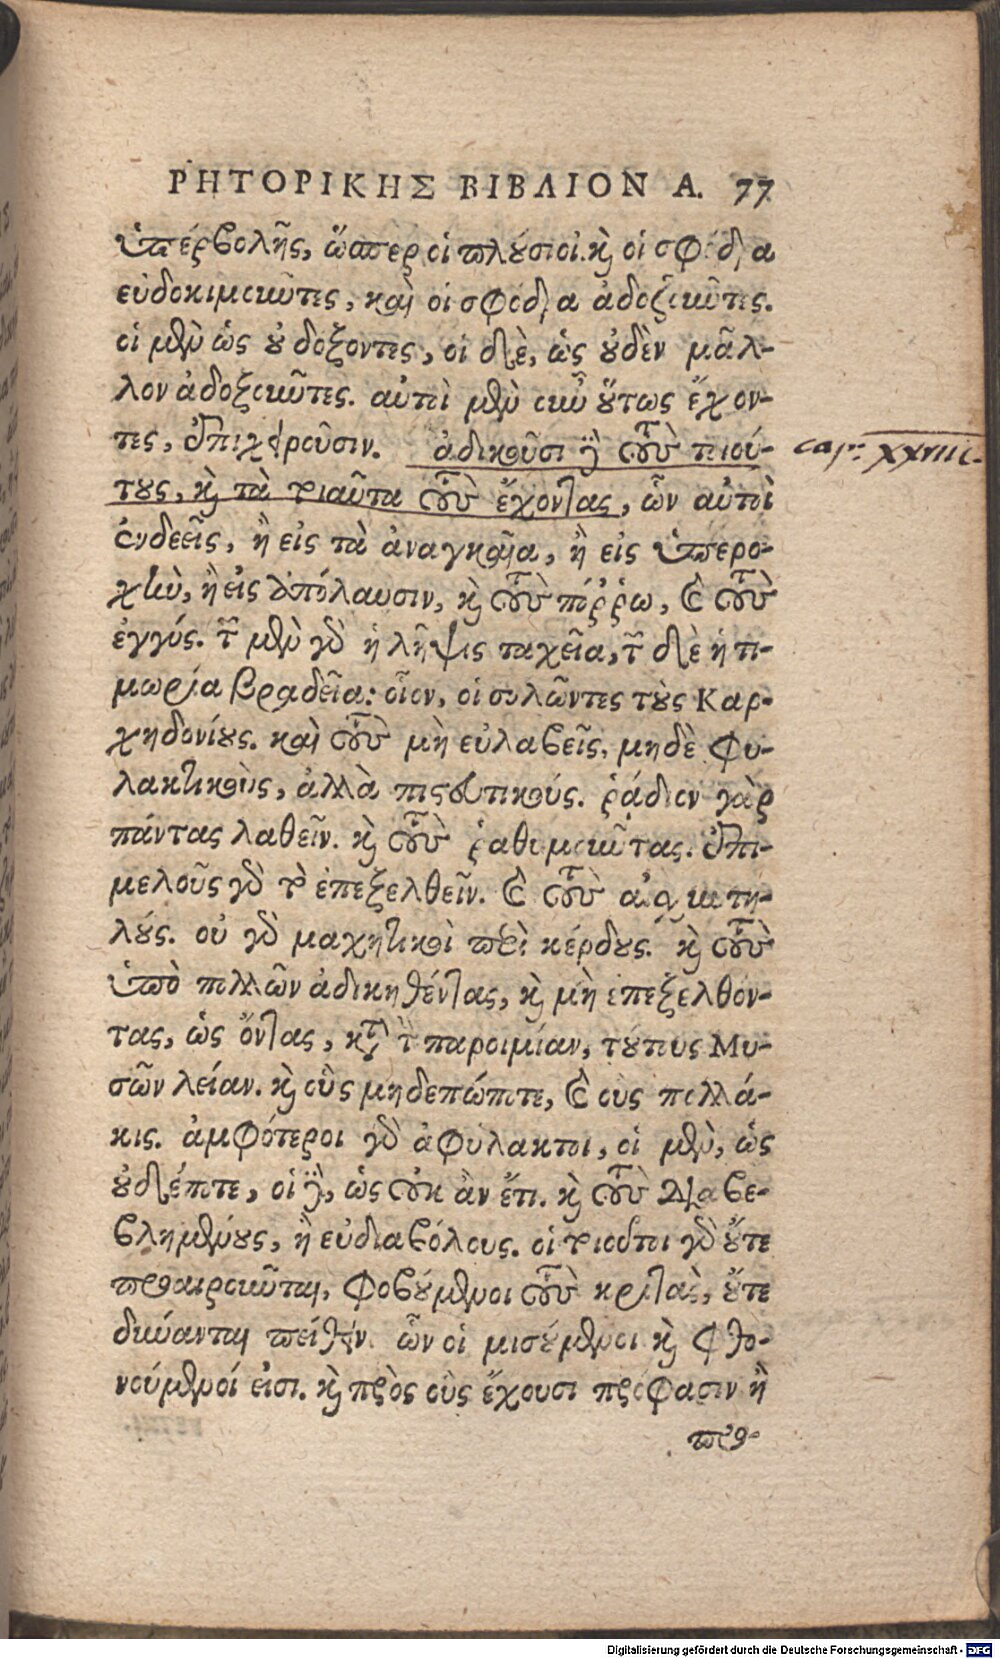 ΡΗΤΟΡΙΚΗΣ ΒΙΒΛΙΟΝ Α. 77
ὑπερβολῆς, ὥσπερ οἱ πλούσιοι. καὶ οἱ σφόδρα
εὐδοκιμοῦντες, καὶ οἱ σφόδρα ἀδοξοῦντες.
οἱ μὲν ὡς οὐ δόξοντες, οἱ δὲ, ὡς οὐδὲν μᾶλ-
λον ἀδοξοῦντες. αὐτοὶ μὲν οὖν οὕτως ἔχον-
τες, ἐπιχειροῦσιν. ἀδικοῦσι δὲ τοὺς τοιού-
τους, καὶ τὰ τοιαῦτα τοὺς ἔχοντας, ὧν αὐτοὶ
ἐνδεεῖς, ἢ εἰς τὰ ἀναγκαῖα, ἢ εἰς ὑπερο-
χὴν, ἢ εἰς ἀπόλαυσιν, καὶ τοὺς πόῤῥω, καὶ τοὺς
ἐγγύς. τῶν μὲν γὰρ ἡ λῆψις ταχεῖα, τῶν δὲ ἡ τι-
μωρία βραδεῖα: οἷον, οἱ συλῶντες τοὺς Καρ-
χηδονίους. καὶ τοὺς μὴ εὐλαβεῖς, μηδὲ φυ-
λακτικοὺς, ἀλλὰ πιστευτικούς. ῥᾴδιον γὰρ
πάντας λαθεῖν. καὶ τοὺς ῥαθυμοῦντας. ἐπι-
μελοῦς γὰρ τὸ ἐπεξελθεῖν. καὶ τοὺς αἰσχυντη-
λούς. οὐ γὰρ μαχητικοὶ περὶ κέρδους. καὶ τοὺς
ὑπὸ πολλῶν ἀδικηθέντας, καὶ μὴ ἐπεξελθόν-
τας, ὡς ὄντας, κατὰ τὴν παροιμίαν, τούτους Μυ-
σῶν λείαν. καὶ οὓς μηδεπώποτε, καὶ οὓς πολλά-
κις. ἀμφότεροι γὰρ ἀφύλακτοι, οἱ μὲν, ὡς
οὐδέποτε, οἱ δὲ, ὡς οὐκ ἂν ἔτι. καὶ τοὺς διαβε-
βλημένους, ἢ εὐδιαβόλους. οἱ τοιοῦτοι γὰρ οὔτε
προαιροῦνται, φοβούμενοι τοὺς κριτὰς, οὔτε
δύνανται πείθειν. ὧν οἱ μισούμενοι καὶ φθο-
νούμενοί εἰσι. καὶ πρὸς οὓς ἔχουσι πρόφασιν ἢ
προ-
cap: XXVIII.
Digitalisierung gefördert durch die Deutsche Forschungsgemeinschaft - DFG